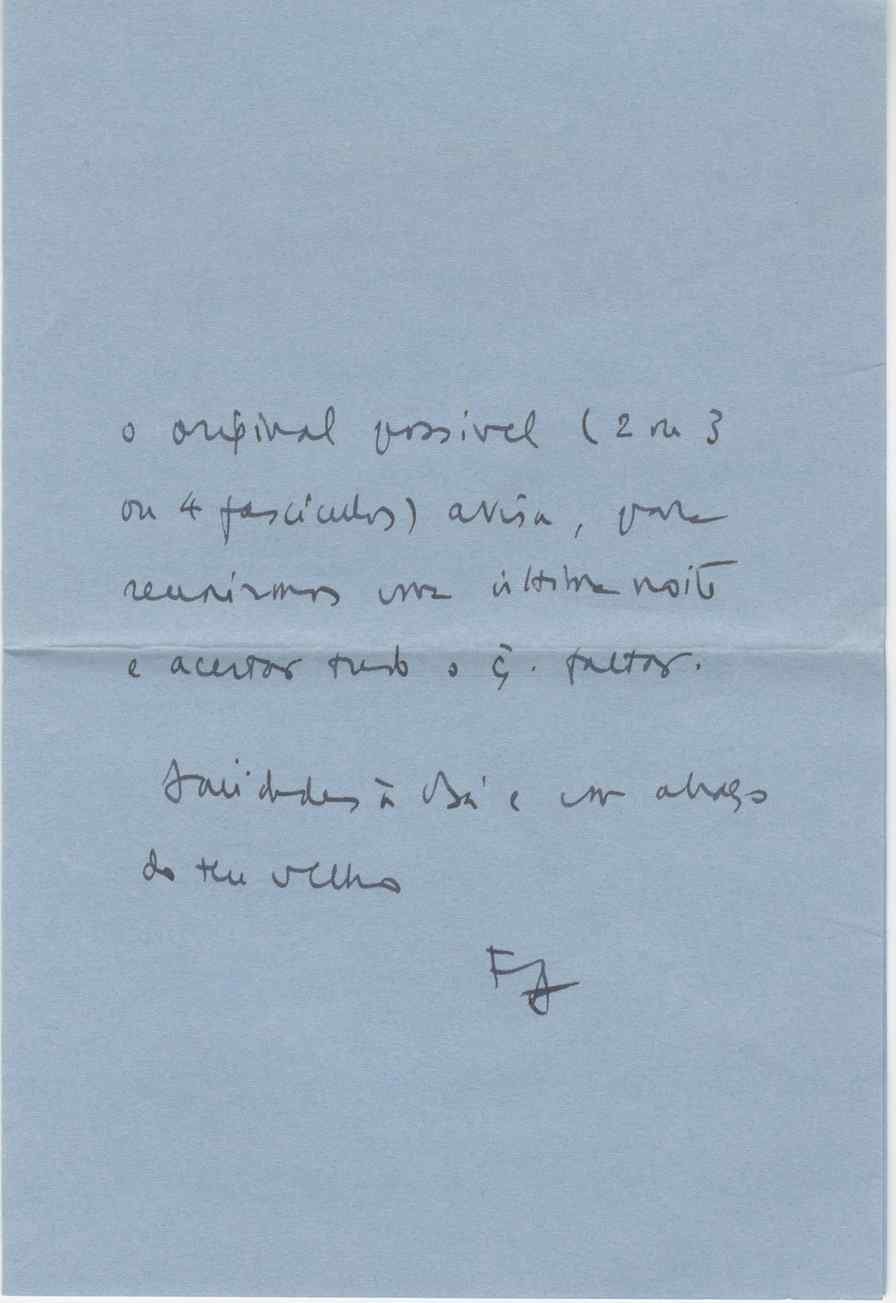 o original possivel (2 ou 3
ou 4 fascículos) avisa, para
reunirmos uma última noite
e acertar tudo o q. faltar.
Saudades à Bá e um abraço
do teu velho